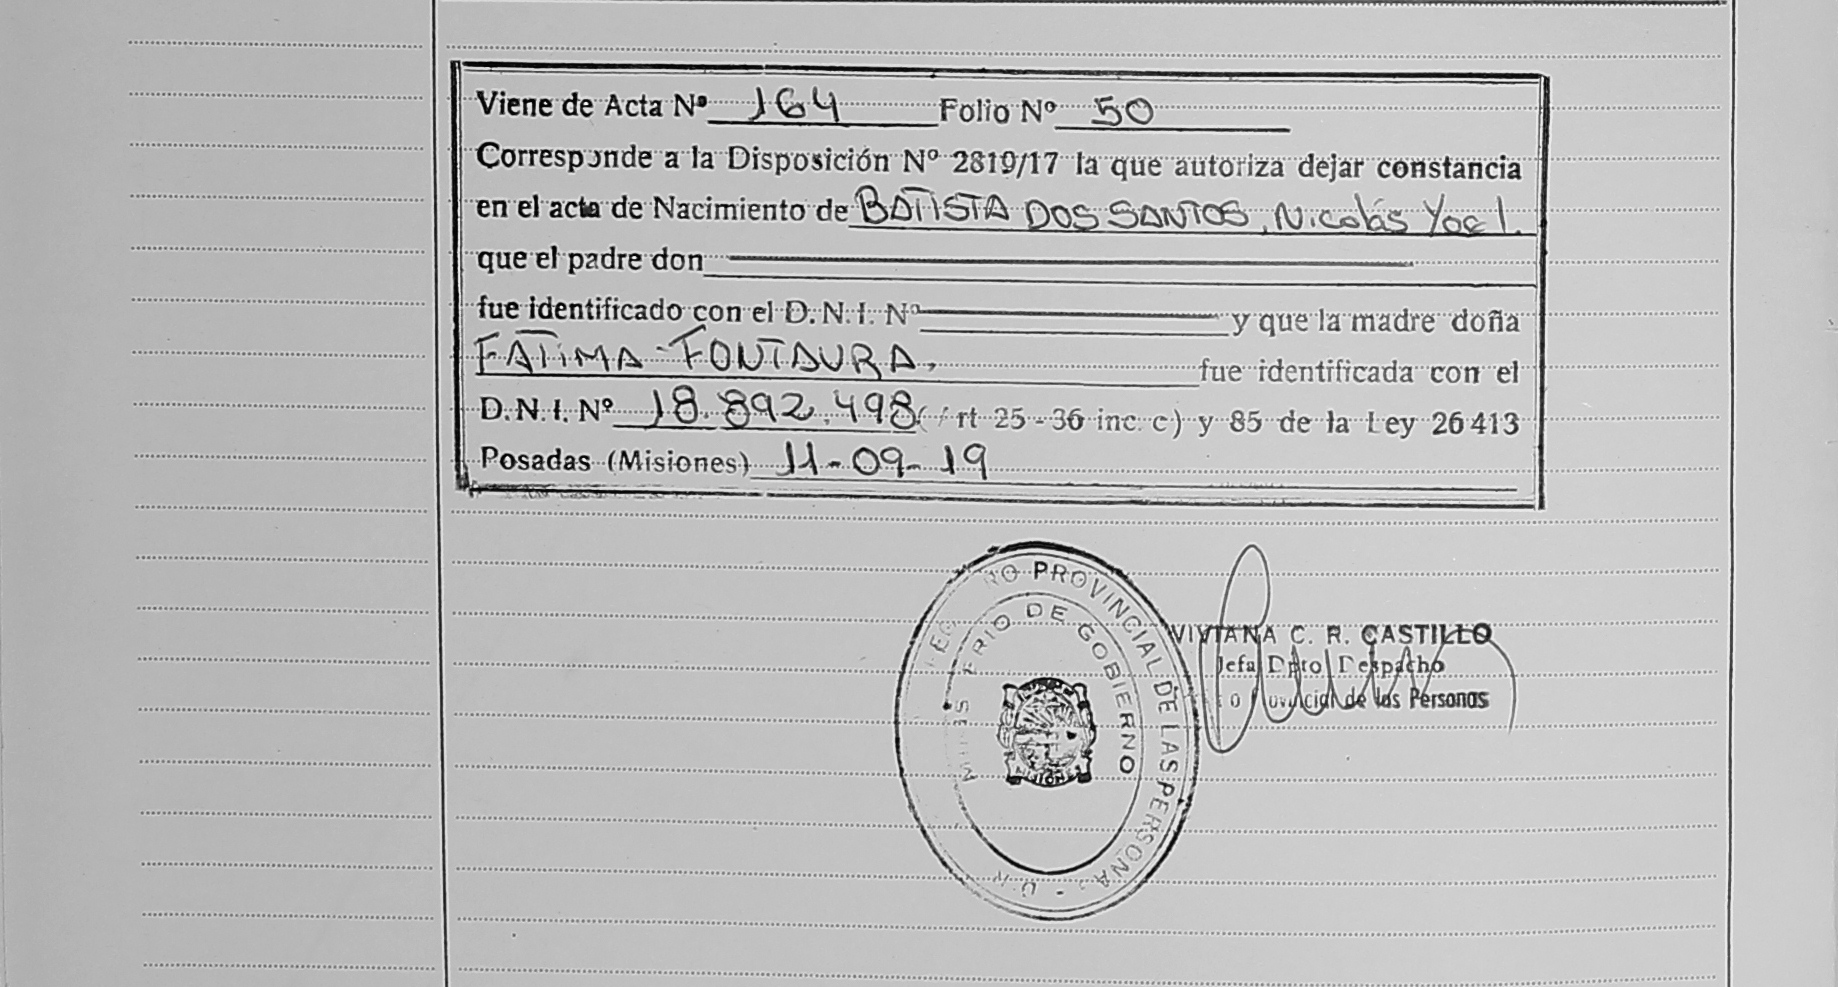 Viene de Acta Nº 164 Folio Nº 50
Corresponde a la Disposición Nº 2819/17 la que autoriza dejar constancia
en el acta de Nacimiento de BATISTA DOS SANTOS, Nicolás Yoel.
que el padre don
fue identificado con el D.N.I. Nº y que la madre doña
FATIMA FONTAURA,
fue identificada con el
D.N.I. Nº 18.892.498 ( rt 25-36 inc. c) y 85 de la Ley 26413
Posadas (Misiones) 11-09-19
PROVINCIAL DE LAS PERSONA
DE GOBIERNO
VIVIANA C. R. CASTILLO
Jefa Dpto Despacho
de las Personas